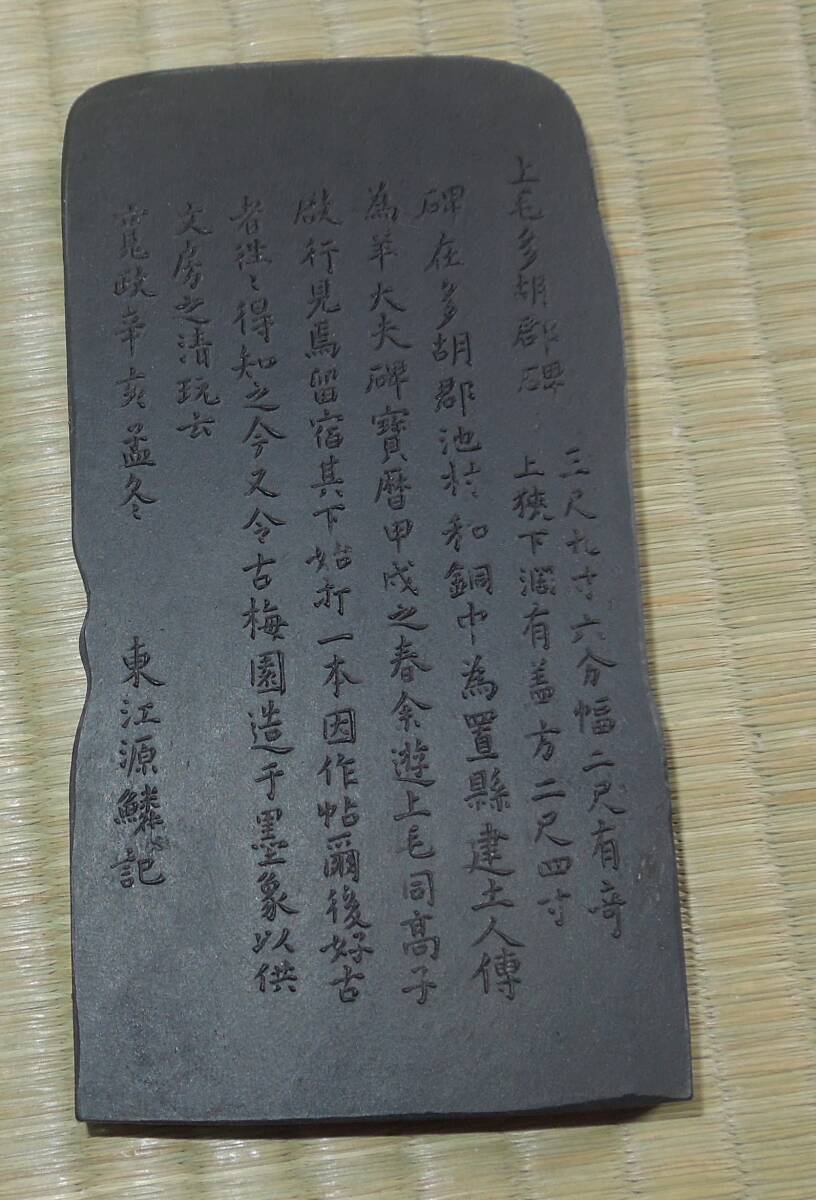 上毛多胡郡碑
三尺九寸六分幅二尺有奇
上狹下濶有盖方二尺四寸
碑在多胡郡池村和銅中為置縣建土人傳
為羊大夫碑寶曆甲戌之春余遊上毛同高子
啟行見焉留宿其下始打一本因作帖爾後好古
者徃〻得知之今又令古梅園造于墨象以供
文房之清玩云
寛政辛亥孟冬
東江源鱗記